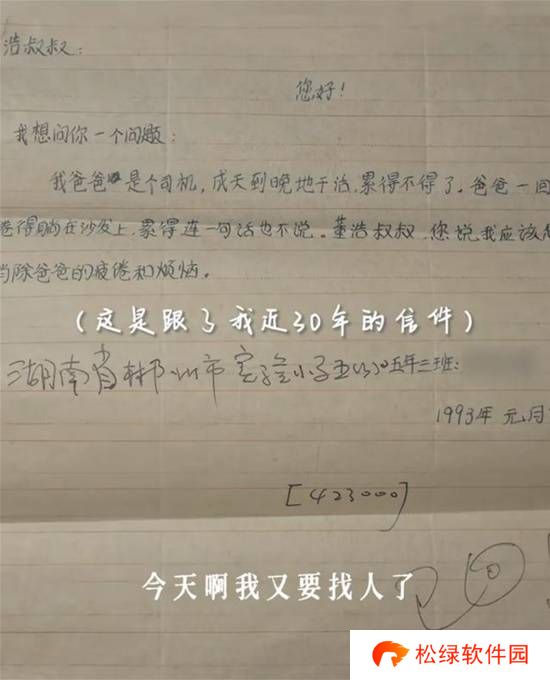 浩叔叔:
您好!
我想问你一个问题:
我爸爸是个司机,成天到晚地干活,累得不得了。爸爸一回
倦得躺在沙发上,累得连一句话也不说。董浩叔叔,您说我应该怎
当除爸爸的疲倦和烦恼。
(这是跟了我近30年的信件)
湖南省郴州市实验小学 五年三班:
1993年 元月
[423000]
今天啊我又要找人了
松绿软件园